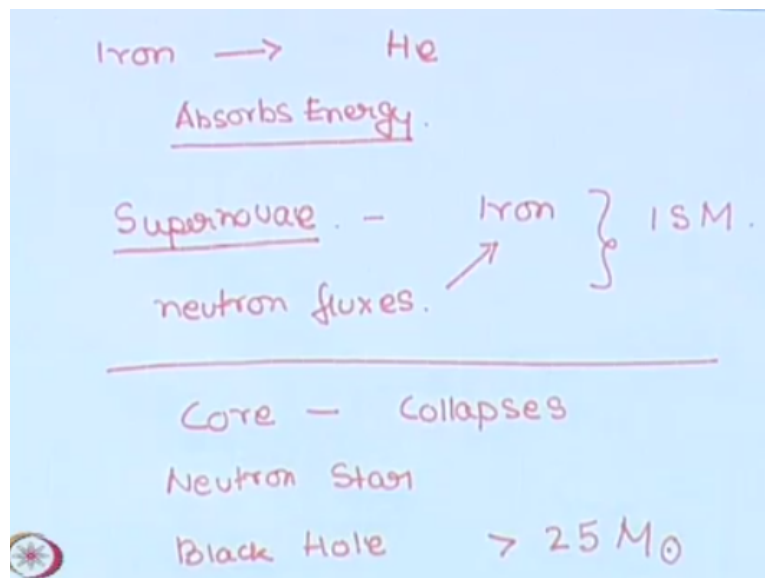 Iron → He
Absorbs Energy.
Supernovae. - Iron } ISM.
neutron fluxes. ↗
Core - Collapses
Neutron Star
Black Hole > 25 M⊙